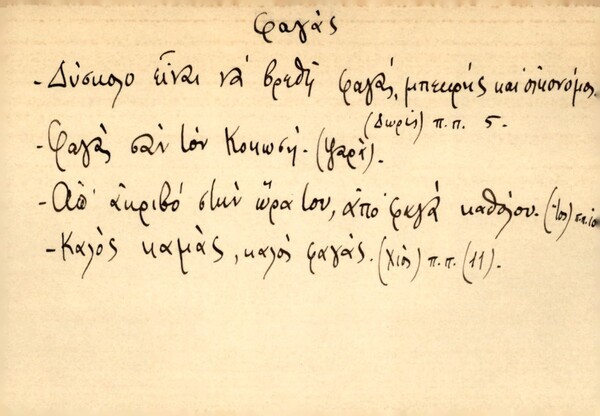 φαγὰς
- Δύσκολο εἶναι νά βρεθῆ φαγάς, μπεκρής καὶ οἰκονόμος.
(Δωρίς) π.π. 5.
- Φαγὰς σαν τον Κοκωσή. (Ψαρὰ).
- Ἀπ' ἀκριβό στὴν ὥρα του, ἀπό φαγὰ καθόλου. (Ἴος) π.π.
- Καλὸς καμὰς, καλὸς φαγάς. (Χίος) π.π. (11).